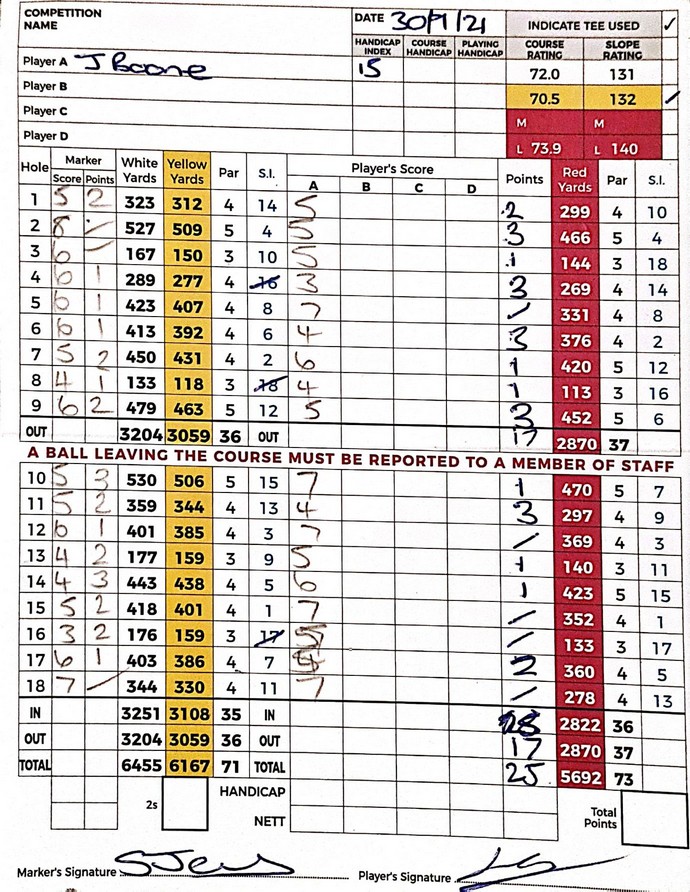 COMPETITION NAME DATE 30/9/21 INDICATE TEE USED ✓
HANDICAP INDEX COURSE HANDICAP PLAYING HANDICAP COURSE RATING SLOPE RATING
Player A J Boone 15 72.0 131
Player B 70.5 132 ✓
Player C M M
Player D L 73.9 L 140
Hole Marker White Yards Yellow Yards Par S.I. Player's Score Points Red Yards Par S.I.
Score Points A B C D
1 5 2 323 312 4 14 5 2 299 4 10
2 8 / 527 509 5 4 5 3 466 5 4
3 6 – 167 150 3 10 5 1 144 3 18
4 6 1 289 277 4 16 3 3 269 4 14
5 6 1 423 407 4 8 7 / 331 4 8
6 6 1 413 392 4 6 4 3 376 4 2
7 5 2 450 431 4 2 6 1 420 5 12
8 4 1 133 118 3 18 4 1 113 3 16
9 6 2 479 463 5 12 5 3 452 5 6
OUT 3204 3059 36 OUT 17 2870 37
A BALL LEAVING THE COURSE MUST BE REPORTED TO A MEMBER OF STAFF
10 5 3 530 506 5 15 7 1 470 5 7
11 5 2 359 344 4 13 4 3 297 4 9
12 6 1 401 385 4 3 7 / 369 4 3
13 4 2 177 159 3 9 5 1 140 3 11
14 4 3 443 438 4 5 6 1 423 5 15
15 5 2 418 401 4 1 7 / 352 4 1
16 3 2 176 159 3 17 / 133 3 17
17 6 1 403 386 4 7 2 360 4 5
18 7 / 344 330 4 11 7 / 278 4 13
IN 3251 3108 35 IN 2822 36
OUT 3204 3059 36 OUT 17 2870 37
TOTAL 6455 6167 71 TOTAL 25 5692 73
2s HANDICAP Total Points
NETT
Marker's Signature Player's Signature